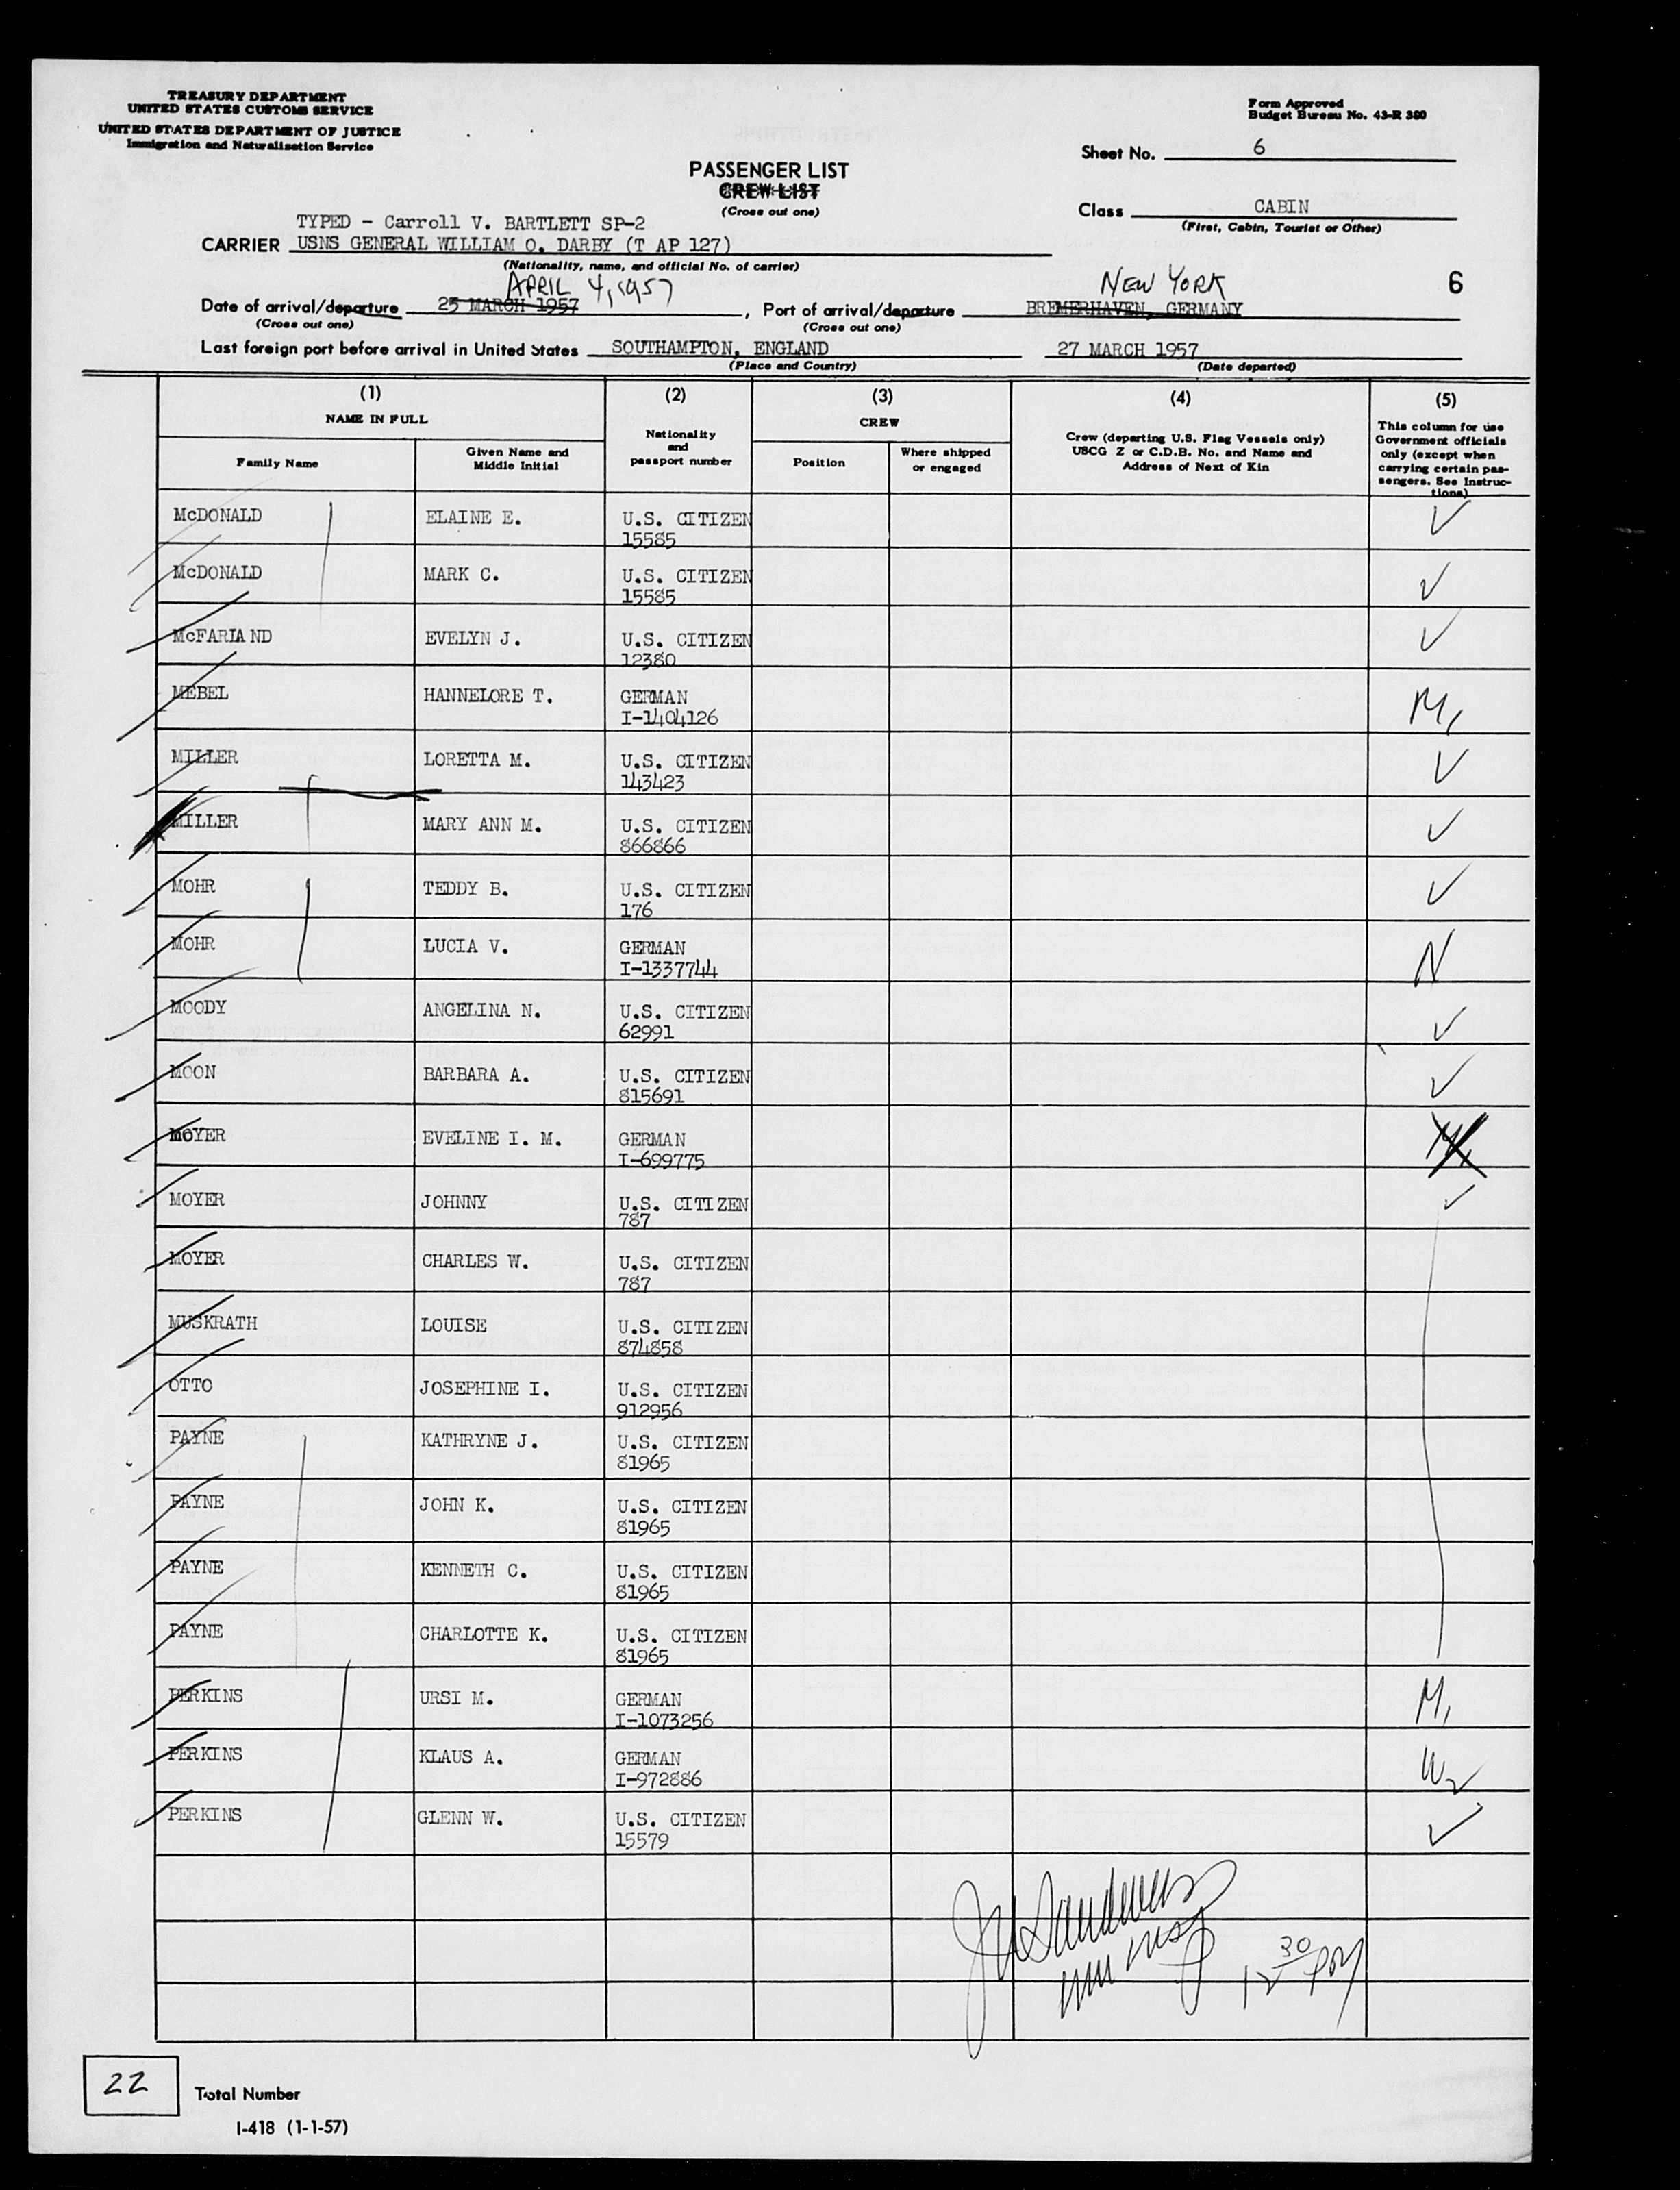 TREASURY DEPARTMENT
UNITED STATES CUSTOMS SERVICE
UNITED STATES DEPARTMENT OF JUSTICE
Immigration and Naturalization Service
Form Approved
Budget Bureau No. 43-R 380
Sheet No. 6
PASSENGER LIST
CREW LIST
(Cross out one)
Class CABIN
(First, Cabin, Tourist or Other)
TYPED - Carroll V. BARTLETT SP-2
CARRIER USNS GENERAL WILLIAM O. DARBY (T AP 127)
(Nationality, name, and official No. of carrier)
APRIL 4, 1957 NEW YORK 6
Date of arrival/departure 25 MARCH 1957, Port of arrival/departure BREMERHAVEN, GERMANY
(Cross out one) (Cross out one)
Last foreign port before arrival in United States SOUTHAMPTON, ENGLAND 27 MARCH 1957
(Place and Country) (Date departed)
(1) (2) (3) (4) (5)
NAME IN FULL
Family Name
Given Name and
Middle Initial
Nationality
and
passport number
CREW
Position
Where shipped
or engaged
Crew (departing U.S. Flag Vessels only)
USCG Z or C.D.B. No. and Name and
Address of Next of Kin
This column for use
Government officials
only (except when
carrying certain pas-
sengers. See Instruc-
tions)
McDONALD ELAINE E. U.S. CITIZEN ✓
15585
McDONALD MARK C. U.S. CITIZEN ✓
15585
McFARLAND EVELYN J. U.S. CITIZEN ✓
12380
MEBEL HANNELORE T. GERMAN M1
I-1404126
MILLER LORETTA M. U.S. CITIZEN ✓
143423
MILLER MARY ANN M. U.S. CITIZEN ✓
866866
MOHR TEDDY B. U.S. CITIZEN ✓
176
MOHR LUCIA V. GERMAN N
I-1337744
MOODY ANGELINA N. U.S. CITIZEN ✓
62991
MOON BARBARA A. U.S. CITIZEN ✓
815691
MOYER EVELINE I. M. GERMAN
I-699775
MOYER JOHNNY U.S. CITIZEN ✓
787
MOYER CHARLES W. U.S. CITIZEN
787
MUSKRATH LOUISE U.S. CITIZEN
874858
OTTO JOSEPHINE I. U.S. CITIZEN
912956
PAYNE KATHRYNE J. U.S. CITIZEN
81965
PAYNE JOHN K. U.S. CITIZEN
81965
PAYNE KENNETH C. U.S. CITIZEN
81965
PAYNE CHARLOTTE K. U.S. CITIZEN
81965
PERKINS URSI M. GERMAN M1
I-1073256
PERKINS KLAUS A. GERMAN
I-972886
PERKINS GLENN W. U.S. CITIZEN ✓
15579
12 30 PM
22 Total Number
I-418 (1-1-57)